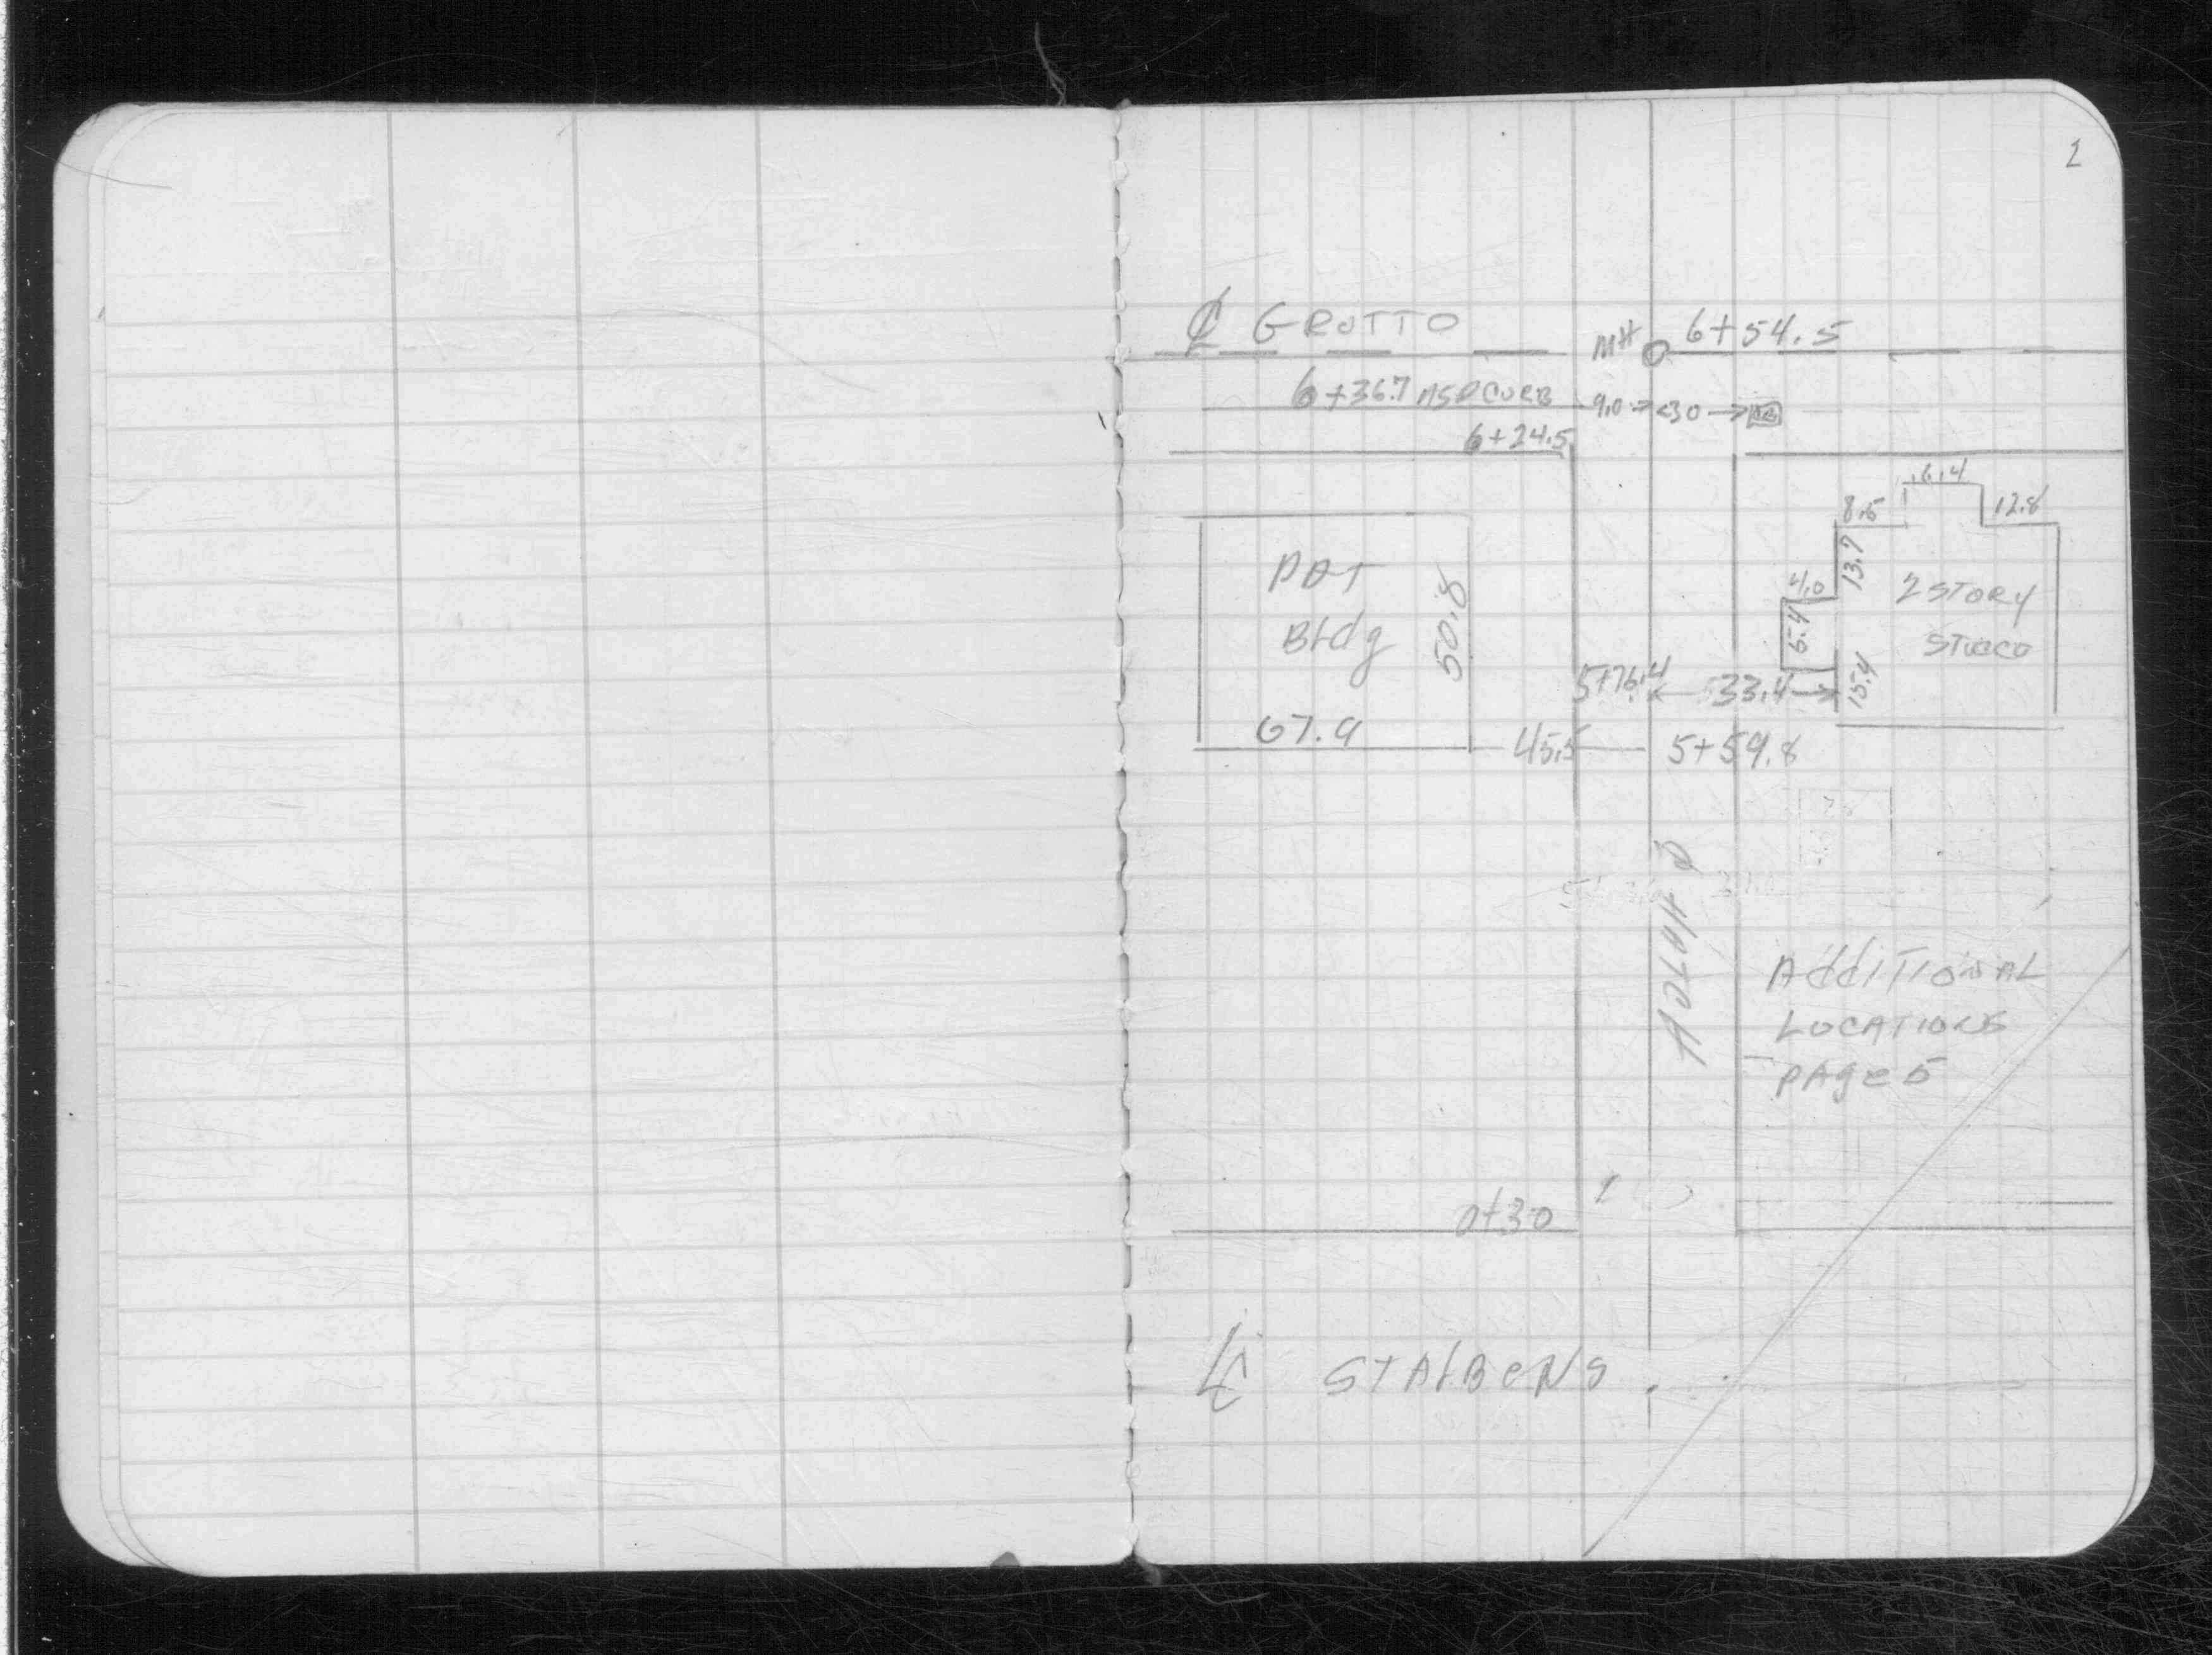 2
℄ GROTTO
MH 6+54.5
6+36.7 ASP CURB 9.0 → ←30→ CB
6+24.5
6.4
8.5 12.8
13.7
4.0
6.4
15.4
2 STORY
STUCCO
PDT
Bldg
50.8
67.9
5+76.4 ←33.4→
45.5 5+59.8
AdditIONAL
LOCATIONS
PAge 5
0+30
℄ STALBeNS